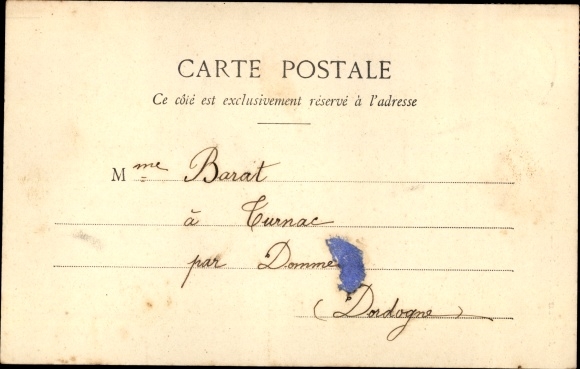 CARTE POSTALE
Ce côté est exclusivement réservé à l'adresse
Mme Barat
à Turnac
par Domme
(Dordogne)